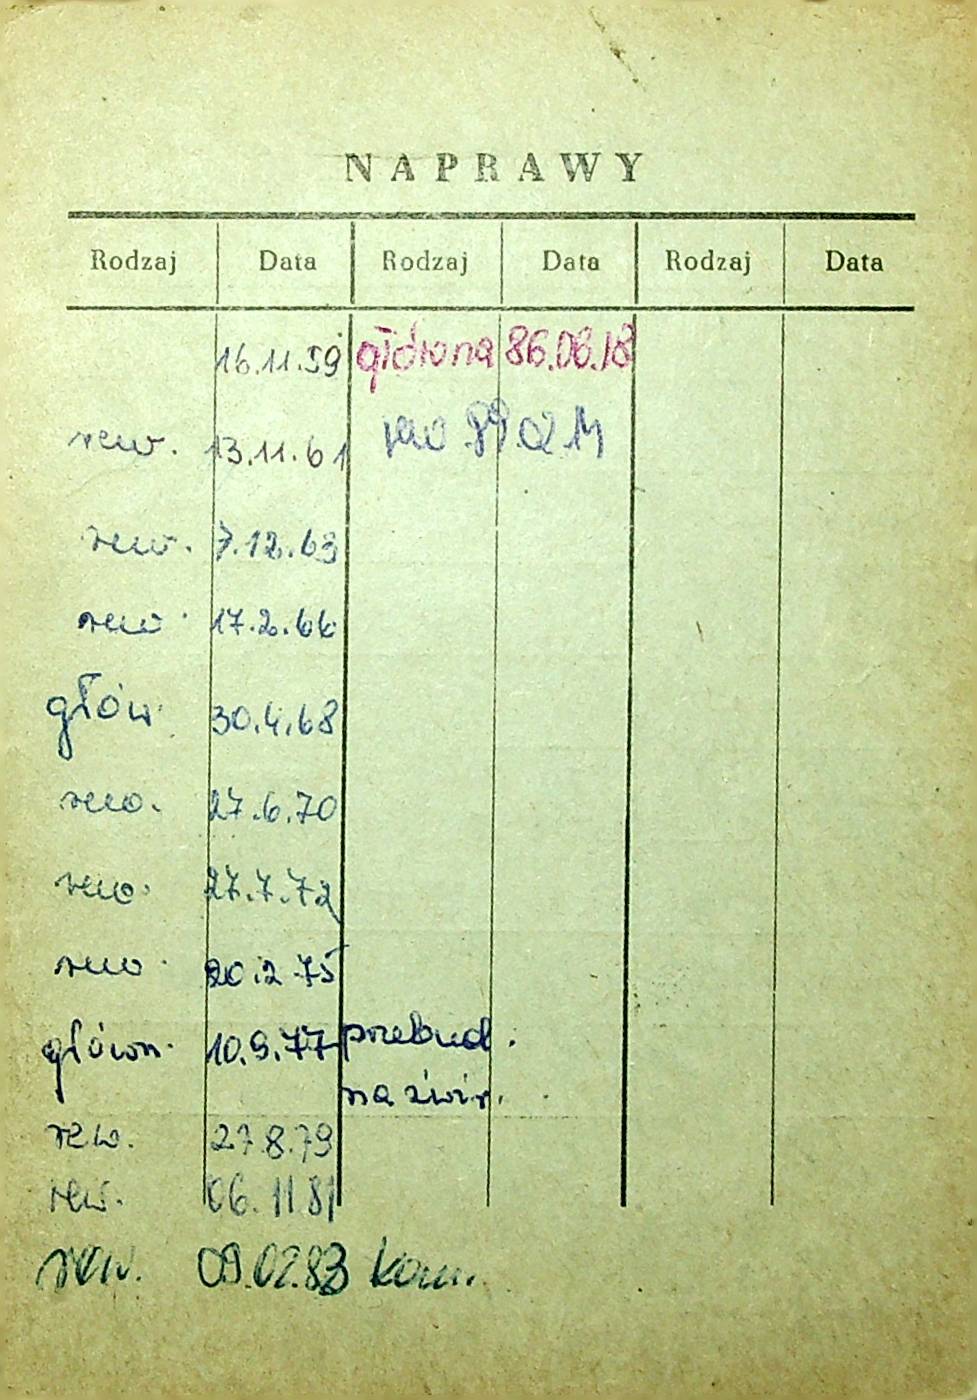 NAPRAWY
Rodzaj Data Rodzaj Data Rodzaj Data
16.11.59 główna 86.08.18
rew. 13.11.61 rew 89.02
rew. 7.12.63
rew. 17.2.66
głów. 30.4.68
rew. 27.6.70
rew. 27.7.72
rew. 20.2.75
główn. 10.9.77 przebud.
na żwir.
rew. 27.8.79
rew. 06.11 81
rew. 09.02.83